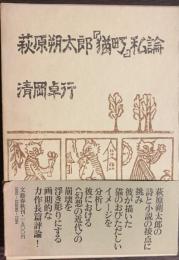 萩原朔太郎『猫町』私論
清岡卓行
萩原朔太郎の
詩と小説の接点に
挑み
彼が描いた
猫のおびただしい
イメージを
分析し
彼における
〈幻想の近代〉の
崩壊を
浮き彫りにする
画期的な
力作長篇評論!